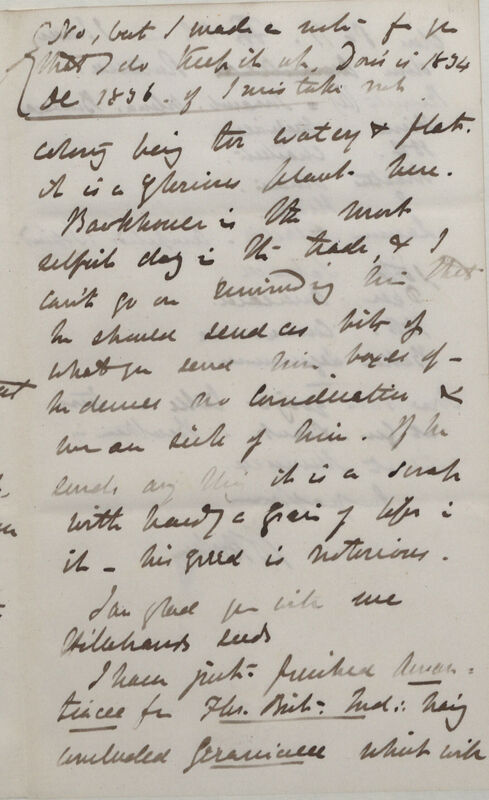 No, but I made a note for you
that I do keep it up, Don's is 1834
De 1836. if I mistake not
colong being too watery & flat.
it is a glorious plant here.
Backhouse is the most
selfish dog in the trade, & I
can't go on reminding him that
he should send us bits of
what you send him boxes of –
he deserves no consideration &
we are sick of him. If he
sends any thing it is a scrap
with hardly a grain of life in
it – his greed is notorious.
I am glad you with me
Hillebrands seeds
I have just finished Auran-
tiaceae for Flor. Brit. Ind: having
concluded Geraniaceae which with